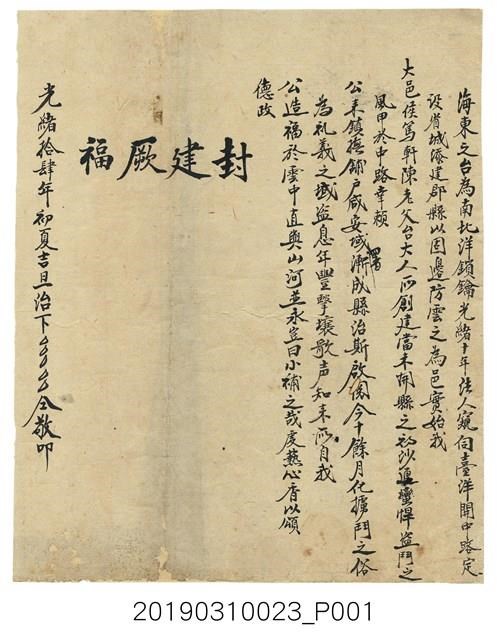 海東之台為南北洋鎖鑰光緒十年法人窺伺臺洋開中路定
設省城添建郡縣以固邊防雲之為邑實始我
大邑侯篤軒陳老父台大人所創建當未開縣之初沙連蠻悍盜鬥之
風甲於中路幸賴
公來鎮撫鋪戶咸安域漸成縣治斯啟閱今十餘月化擄鬥之俗
署
為礼義之域盜息年豐擊壤歌声知来所自我
公造福於雲中直與山河並永豈曰小補之哉虔爇心香以頌
德政
封建厥福
光緒拾肆年初夏吉旦治下仝敬叩
20190310023_P001